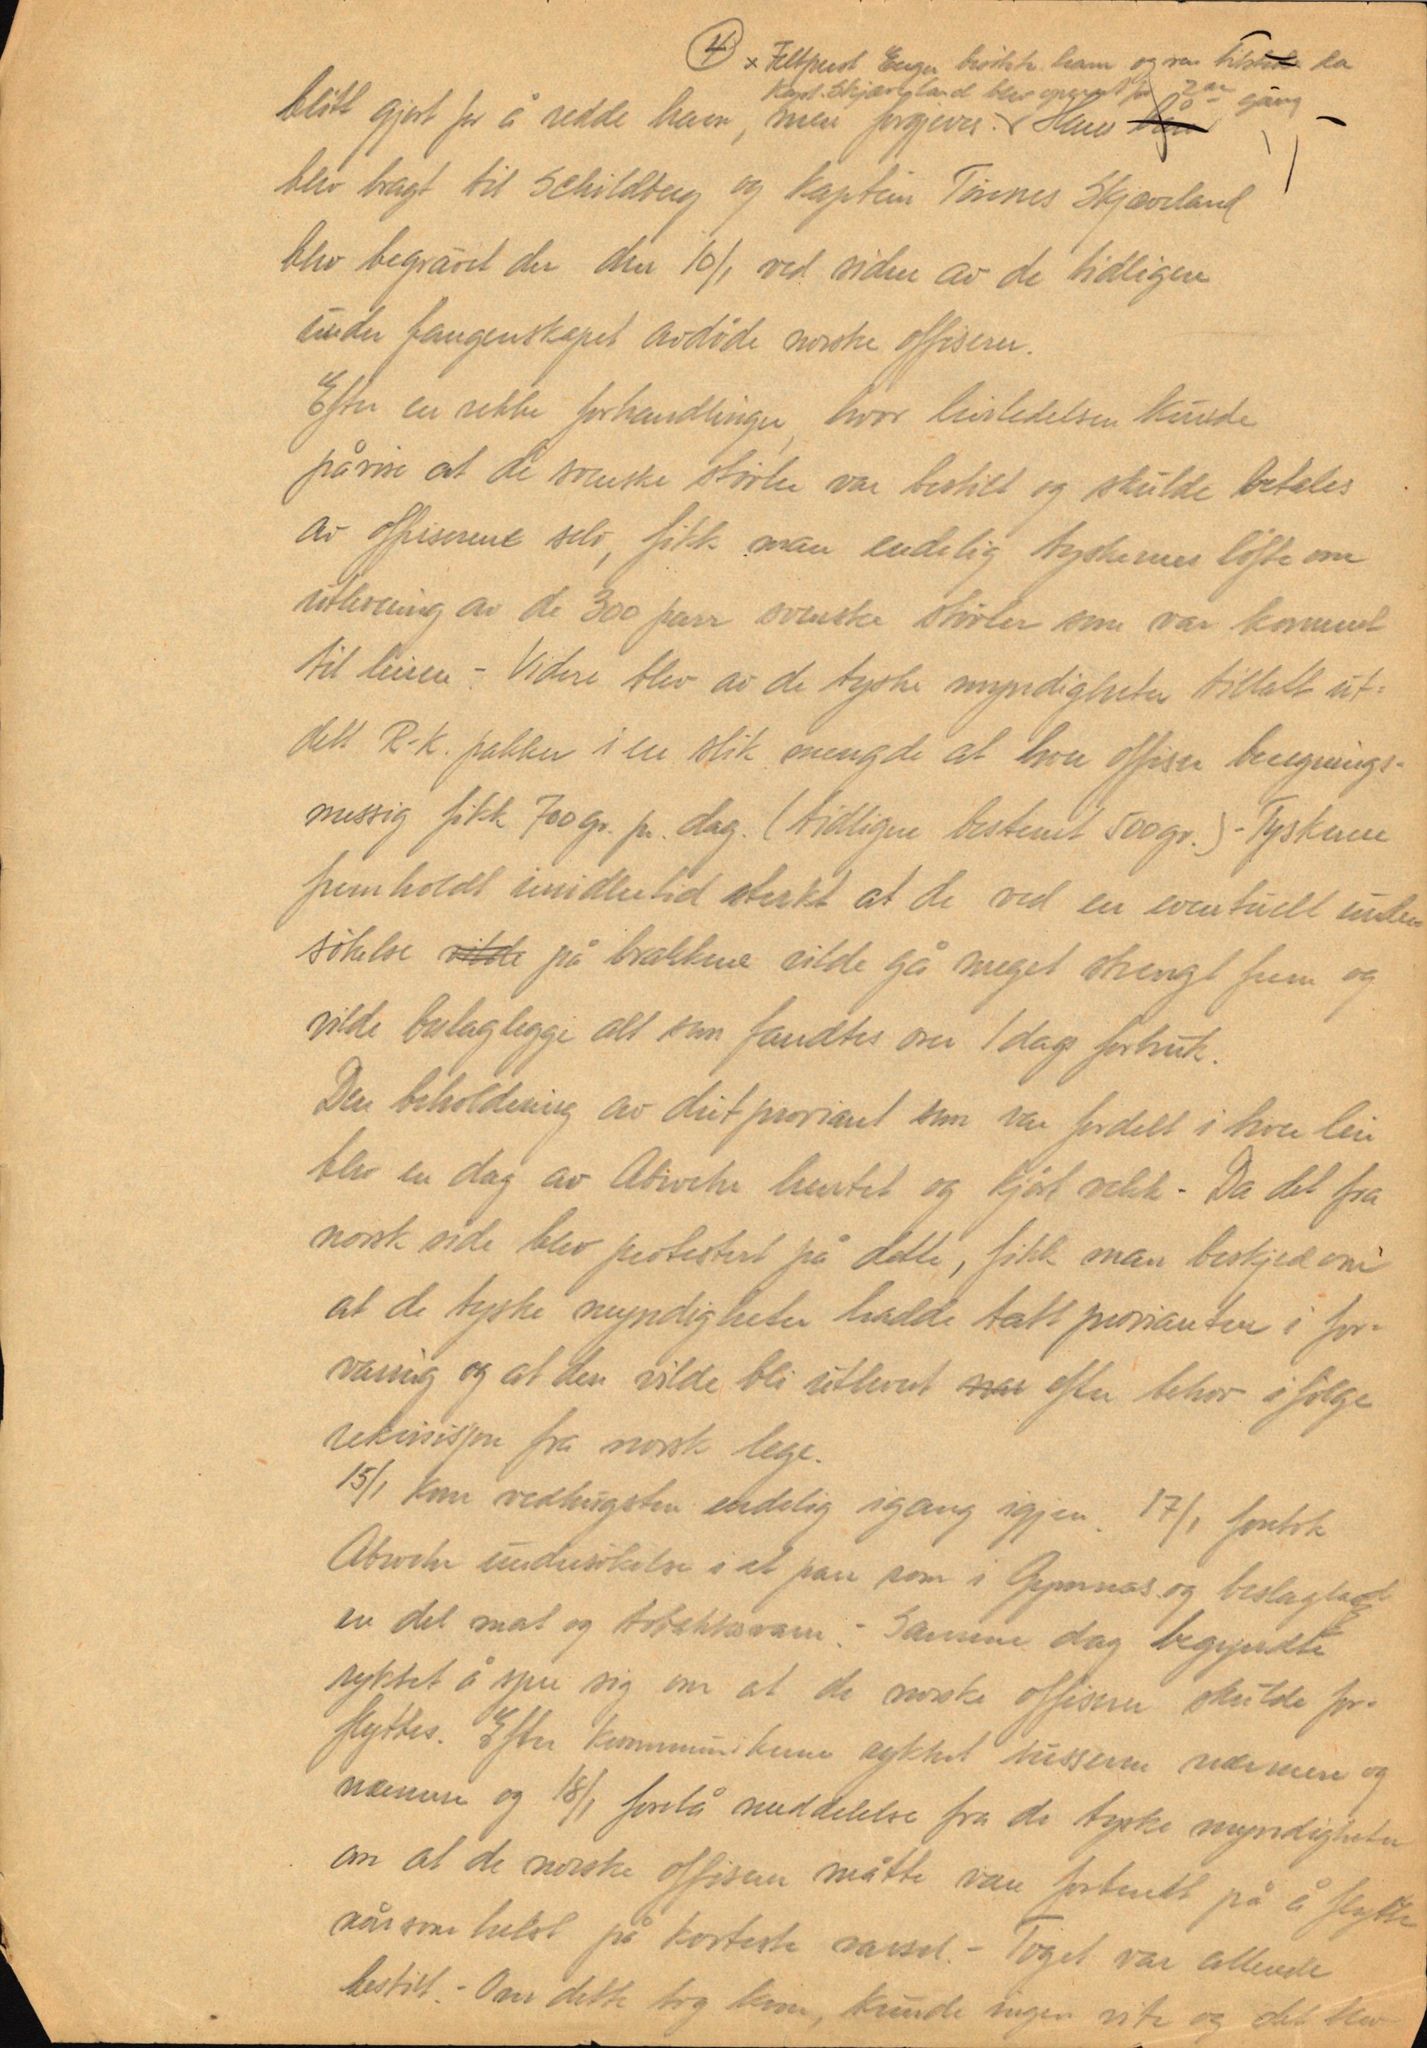 ④ × Feltprest Enger besøkte ham og var tilstede da
Kapt. Skjæveland blev operert for 2an gang
blitt gjort for å redde ham, men forgjeves. × Hans
blev bragt til Schildberg og Kaptein Tønnes Skjæveland
blev begravet der den 10/1 ved siden av de tidligere
under fangenskapet avdøde norske offiserer.
Efter en rekke forhandlinger, hvor leirledelsen kunde
påvise at de svenske støvler var bestilt og skulde betales
av offiserene selv, fikk man endelig tyskernes løfte om
utlevering av de 300 parr svenske støvler som var kommet
til leiren - Videre blev av de tyske myndigheter tillatt ut-
delt R-K. pakker i en slik mengde at hver offiser beregnings-
messig fikk 700 gr. pr. dag. (tidligere bestemt 500 gr.) - Tyskerne
fremholdt imidlertid sterkt at de ved en eventuell under
søkelse vilde på brakkene vilde gå meget strengt frem og
vilde beslaglegge alt som fandtes over 1 dags forbruk.
Den beholdning av dietproviant som var fordelt i hver leir
blev en dag av Abwehr hentet og kjørt vekk - Da det fra
norsk side blev protestert på dette, fikk man beskjed om
at de tyske myndigheter hadde tatt provianten i for-
varing og at den vilde bli utlevert efter behov ifølge
rekvisisjon fra norsk lege.
15/1 kom vedhugsten endelig igang igjen. 17/1 foretok
Abwehr undersøkelse i et par rom i Gymnas og beslagla
en del mat og tobakksvarer. - Samme dag begyndte
ryktet å spre sig om at de norske offiserer skulde for-
flyttes. Efter kommunikeene rykket russerne nærmere og
nærmere og 18/1 forelå meddelelse fra de tyske myndigheter
om at de norske offiserer måtte være forberedt på å flytte
når som helst på korteste varsel. - Toget var allerede
bestilt. - Om dette tog kom, kunde ingen vite og det blev